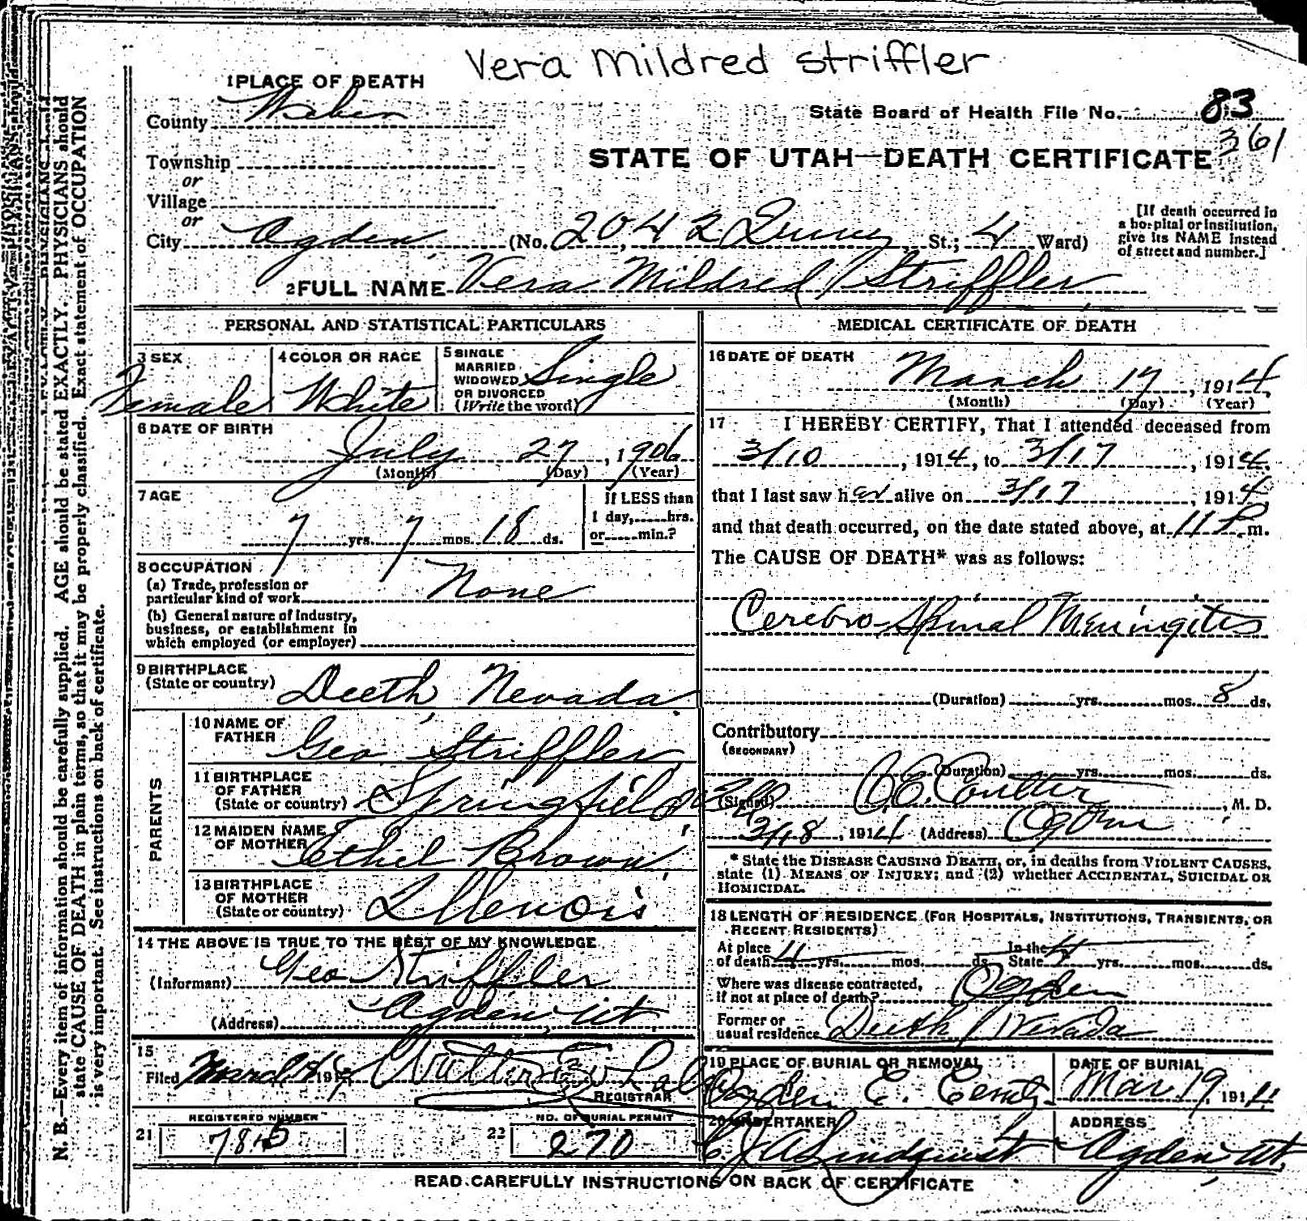 Vera Mildred Striffler
1 PLACE OF DEATH
County Weber
State Board of Health File No. 83
361
STATE OF UTAH—DEATH CERTIFICATE
Township
or
Village
or
City Ogden (No. 2042 Quincy St.; 4 Ward)
[If death occurred in a hospital or institution, give its NAME instead of street and number.]
2 FULL NAME Vera Mildred Striffler
PERSONAL AND STATISTICAL PARTICULARS
3 SEX
Female
4 COLOR OR RACE
White
5 SINGLE
MARRIED
WIDOWED
OR DIVORCED
(Write the word)
Single
6 DATE OF BIRTH
July 27, 1906
(Month) (Day) (Year)
7 AGE
7 yrs. 7 mos. 18 ds.
If LESS than
1 day,......hrs.
or......min.?
8 OCCUPATION
(a) Trade, profession or
particular kind of work None
(b) General nature of industry,
business, or establishment in
which employed (or employer)
9 BIRTHPLACE
(State or country) Deeth Nevada
PARENTS
10 NAME OF
FATHER Geo Striffler
11 BIRTHPLACE
OF FATHER
(State or country) Springfield Ill
12 MAIDEN NAME
OF MOTHER Ethel Brown
13 BIRTHPLACE
OF MOTHER
(State or country) Illenois
14 THE ABOVE IS TRUE TO THE BEST OF MY KNOWLEDGE
(Informant) Geo Striffler
(Address) Ogden, Ut
15
Filed March 191
REGISTRAR
REGISTERED NUMBER
21 7845
NO. OF BURIAL PERMIT
22 270
MEDICAL CERTIFICATE OF DEATH
16 DATE OF DEATH
March 17, 1914
(Month) (Day) (Year)
17 I HEREBY CERTIFY, That I attended deceased from
3/10, 1914, to 3/17, 1914.
that I last saw her alive on 3/17, 1914
and that death occurred, on the date stated above, at 11 P m.
The CAUSE OF DEATH* was as follows:
Cerebro Spinal Meningitis
(Duration) yrs. mos. 8 ds.
Contributory
(SECONDARY)
(Duration) yrs. mos. ds.
(Signed) C.E. Coulter, M. D.
3/18, 1914 (Address) Ogden
* State the DISEASE CAUSING DEATH, or, in deaths from VIOLENT CAUSES,
state (1) MEANS OF INJURY; and (2) whether ACCIDENTAL, SUICIDAL OR
HOMICIDAL.
18 LENGTH OF RESIDENCE (FOR HOSPITALS, INSTITUTIONS, TRANSIENTS, OR
RECENT RESIDENTS)
At place
of death 4 yrs. mos. ds. In the State 4 yrs. mos. ds.
Where was disease contracted,
if not at place of death? Ogden
Former or
usual residence Deeth Nevada
19 PLACE OF BURIAL OR REMOVAL
Ogden C. Cemty
DATE OF BURIAL
Mar 19 1914
20 UNDERTAKER
Lindquist
ADDRESS
Ogden Ut.
READ CAREFULLY INSTRUCTIONS ON BACK OF CERTIFICATE
N. B.—Every item of information should be carefully supplied. AGE should be stated EXACTLY. PHYSICIANS should
state CAUSE OF DEATH in plain terms, so that it may be properly classified. Exact statement of OCCUPATION
is very important. See instructions on back of certificate.